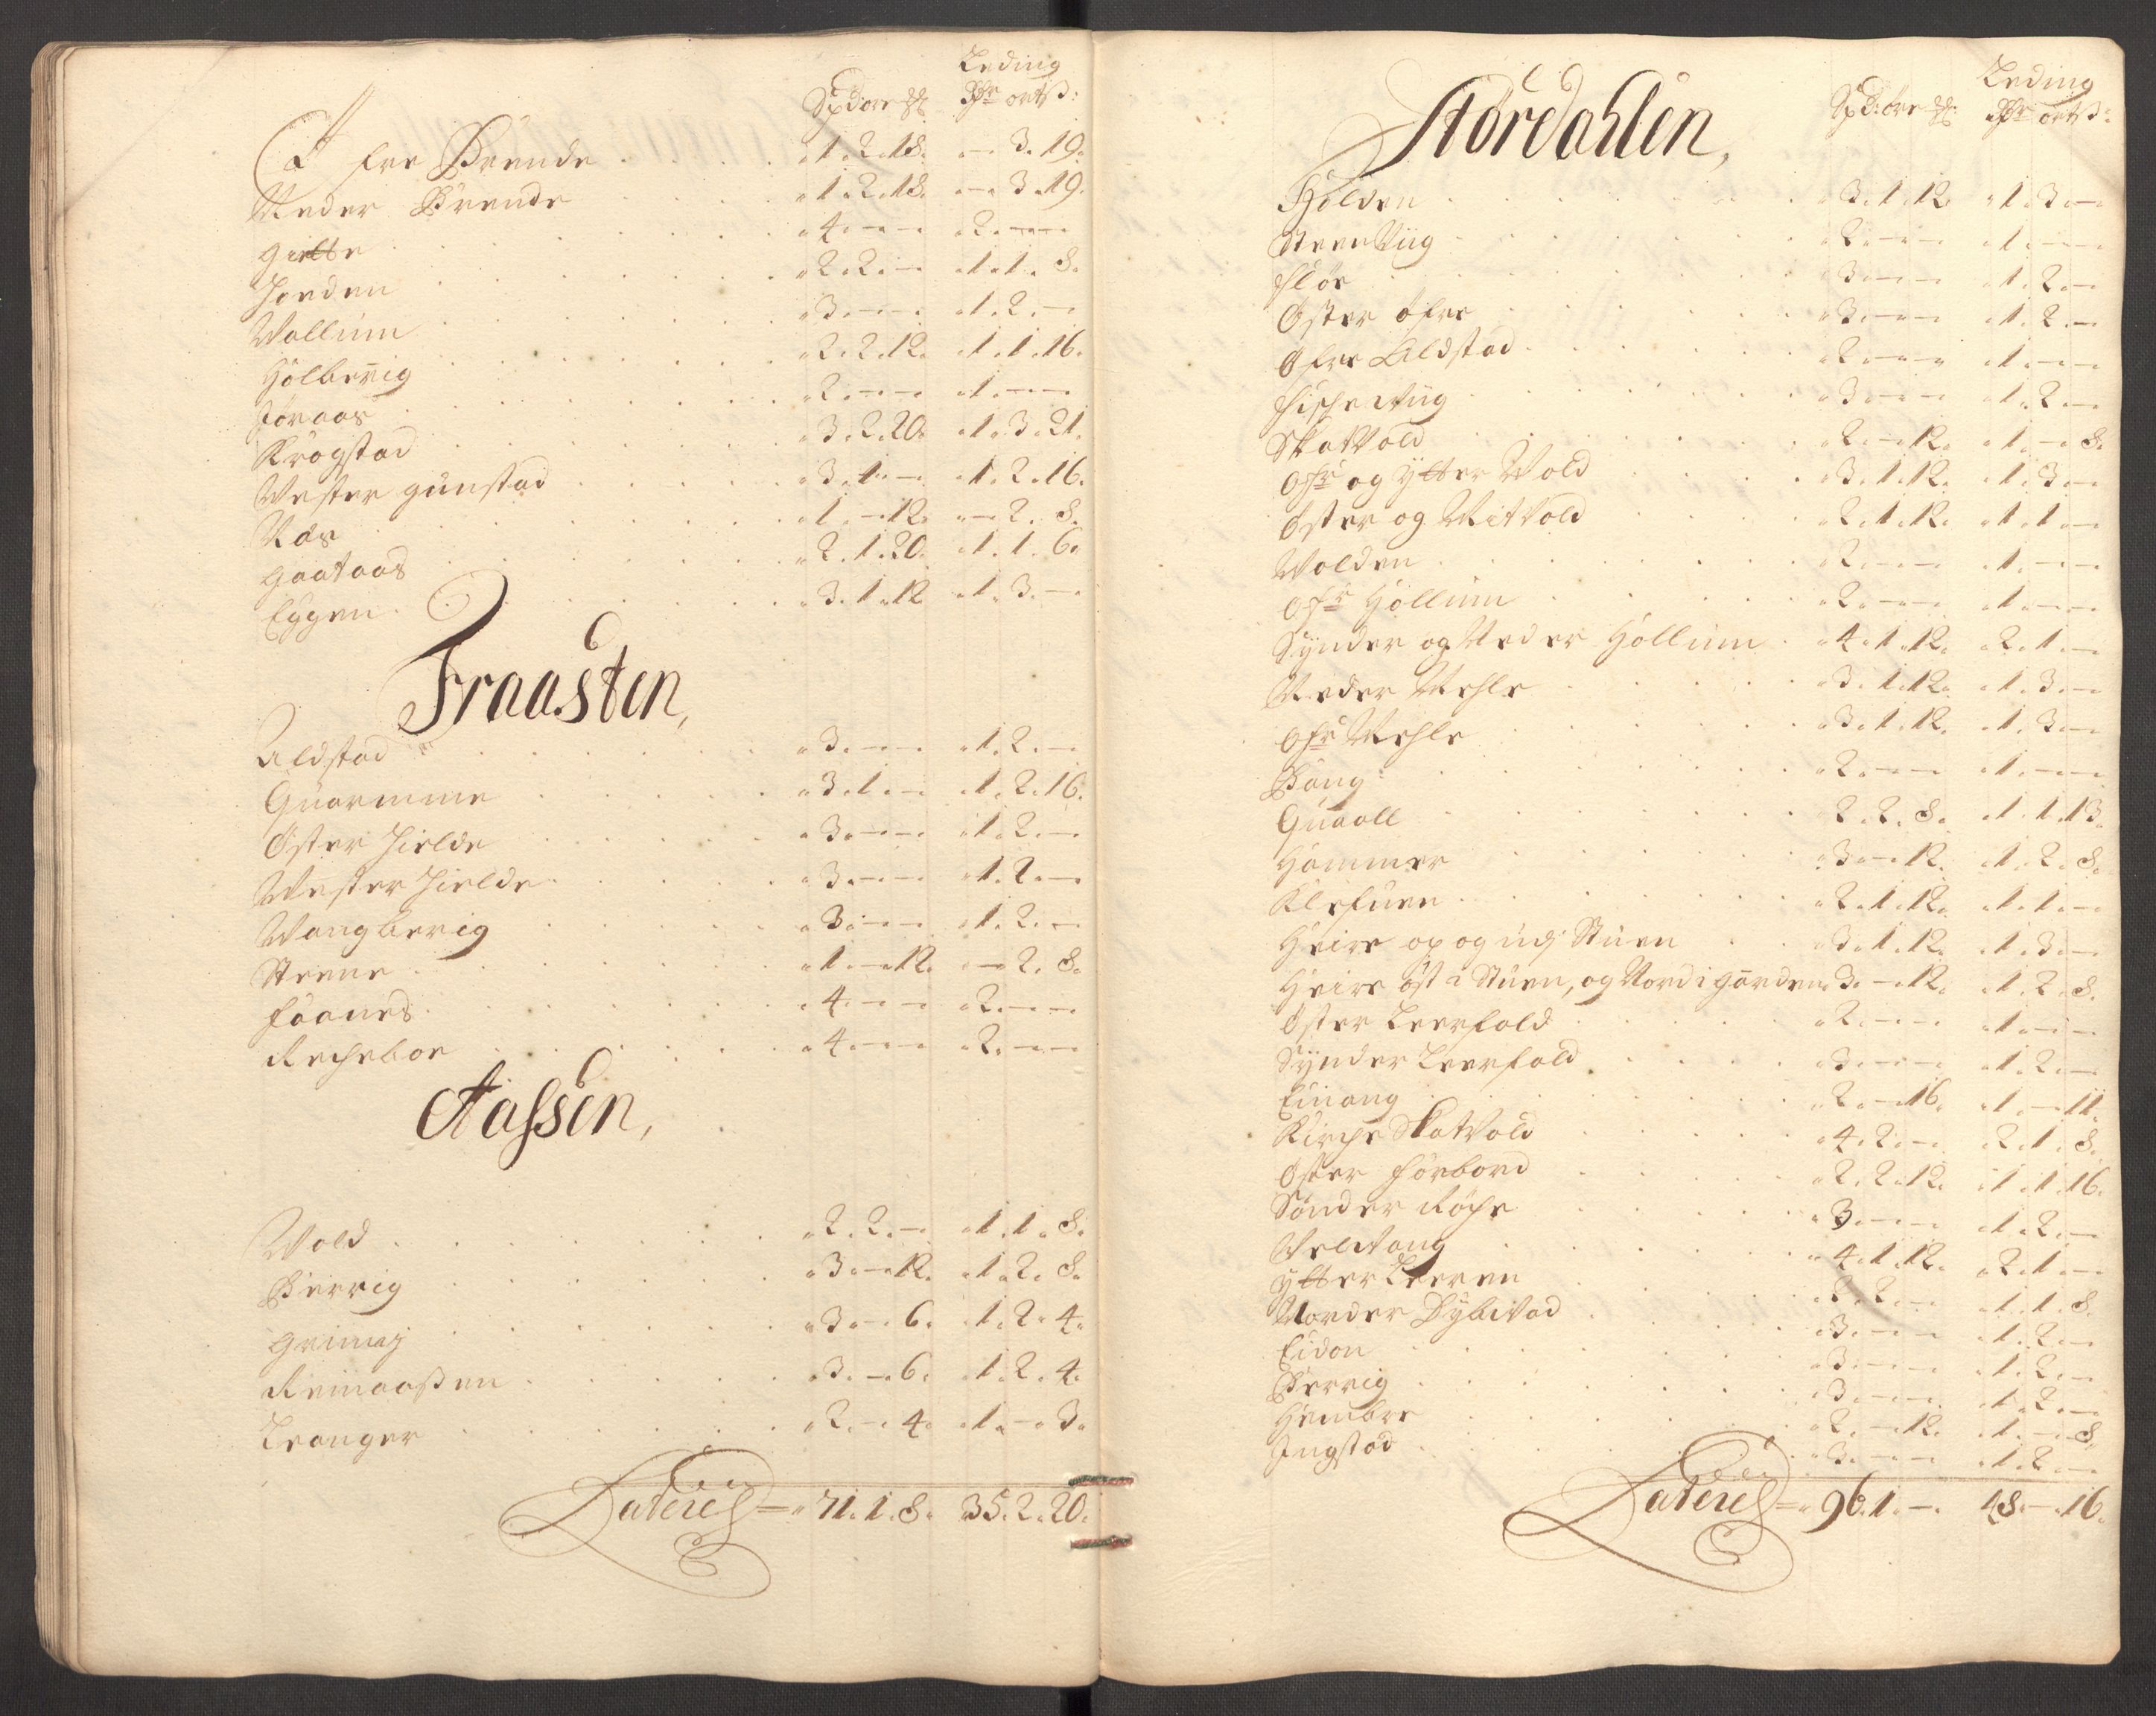 Leding
Spd ore ℔ Rdr ort ß:
Øfre Brende .1.2.18. — 3.19.
Neder Brende .1.2.18. — 3.19.
Gielte .4.—.— .2.—.—
Jorden .2.2.— .1.1.8.
Wollum .3.—.— .1.2.—
Holberrig .2.2.12. .1.1.16.
Joraas .2.—.— .1.—.—
Krogstad .3.2.20. .1.3.21.
Wester gunstad .3.1.— .1.2.16.
Næs .1.—.12. .—.2.8.
Gaataas .2.1.20. .1.1.6.
Eggen .3.1.12 .1.3.—
Fraasten,
Aldstad .3.—.— .1.2.—
Quarmme .3.1.— .1.2.16.
Øster Hielde .3.—.— .1.2.—
Wester Hielde .3.—.— .1.2.—
Wangberig .3.—.— .1.2.—
Steene .1.—.12. .—.2.8.
Faanes .4.—.— .2.—.—
Recheboe .4.—.— .2.—.—
Aassen,
Wold .2.2.— .1.1.8.
Bierrig .3.—.12. .1.2.8.
Grimaj .3.—.6. .1.2.4.
Reinaassen .3.—.6. .1.2.4.
Leanger .2.—.4. .1.—.3.
Lateres = .71.1.8. 35.2.20.
Leding
Stördahlen, Spd: ore ℔: Rdr ort ß:
Holden .3.1.12 .1.3.—
Steenviig .2.—.— .1.—.—
Flöe .3.—.— .1.2.—
Øster øfre .3.—.— .1.2.—
Øfre Aldstad .2.—.— .1.—.—
Fischewiig .3.—.— .1.2.—
Skatvold .2.—.12. .1.—.8.
Ofre og Ytter Wold .3.1.12. .1.3.—
Øster og MitVold .2.1.12. .1.1.—
Wolden .2.—.— .1.—.—
Ofre Hollum .2.—.— .1.—.—
Synder og Neder Hollum .4.1.12. .2.1.—
Neder Mehle .3.1.12. .1.3.—
Ofre Mehle .3.1.12. .1.3.—
Bang .2.—.— .1.—.—
Quaall 2.2.8. .1.1.13.
Hammer .3.—.12. .1.2.8.
Klefuen .2.1.12. .1.1.—
Heire op og udj Stuen .3.1.12. .1.3.—
Heire øst i Stuen, og Nord i garden .3.—.12. .1.2.8.
Øster Leerfald .2.—.— .1.—.—
Synder Leerfald .3.—.— .1.2.—
Einang .2.—.16. .1.—.11.
Kirche Skatvold .4.2.— .2.1.8.
Øster Forbord .2.2.12. .1.1.16.
Sønder Röche .3.—.— .1.2.—
Velvang .4.1.12. .2.1.—
Ytter Leeren .2.2.— .1.1.8.
Norder Dybvad .3.—.— .1.2.—
Eidon .3.—.— .1.2.—
Bierrig .3.—.— .1.2.—
Hembre .2.—.12. .1.—.8.
Ingstad .3.—.— .1.2.—
Lateres = .96.1.— 48.—.16.